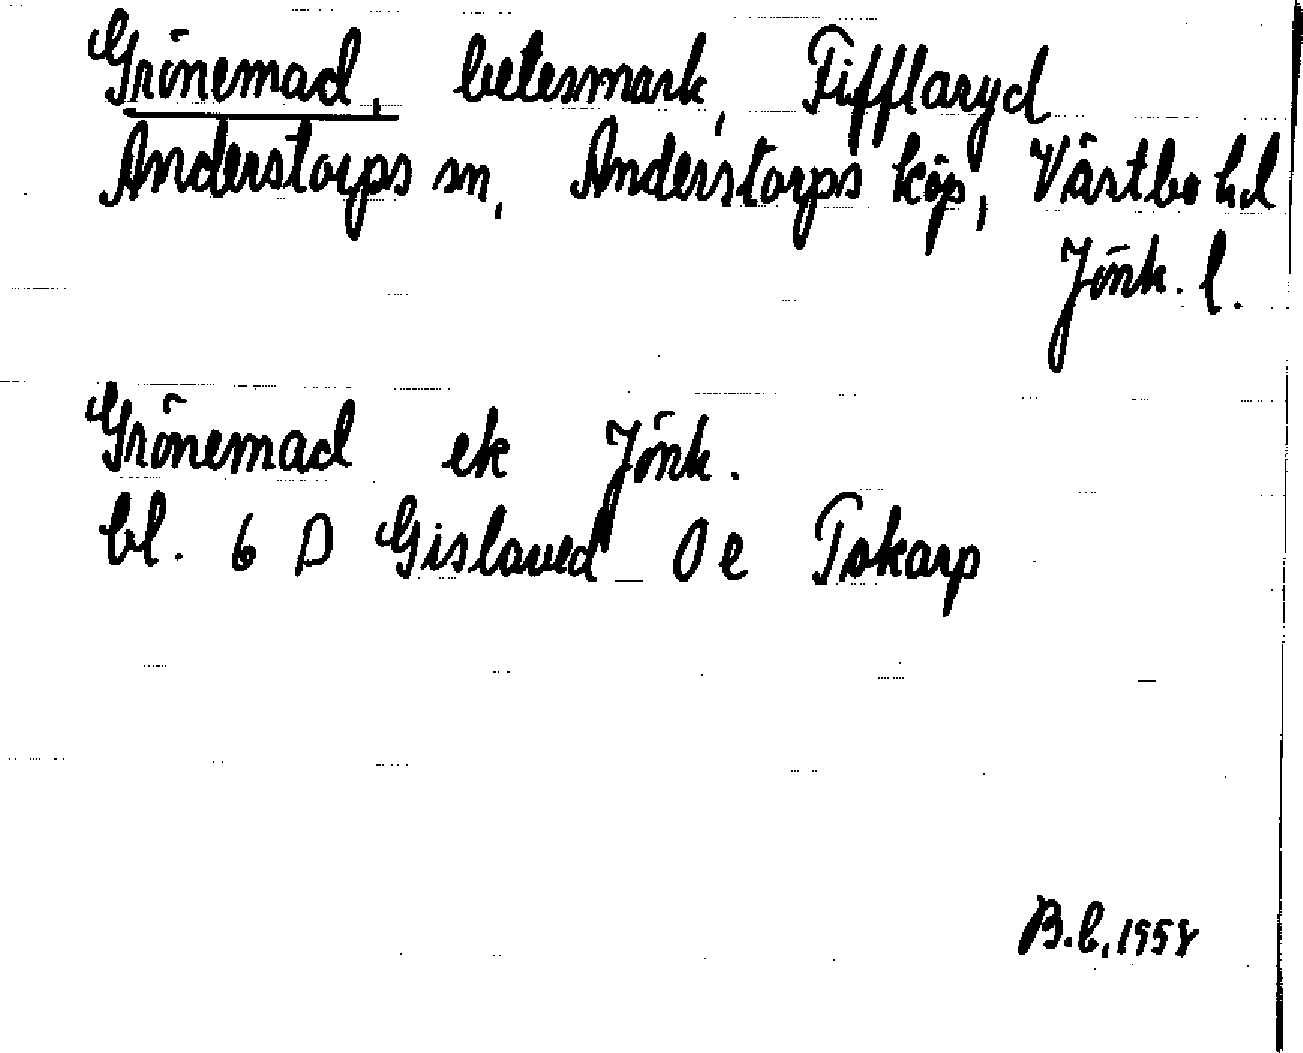 Grönemad, betesmark, Fifflaryd
Anderstorps sn, Anderstorps köp, Västbo hd
Jönk. l.
Grönemad ek Jönk.
bl. 6 D Gislaved 0 e Töskarp
B.b. 1958